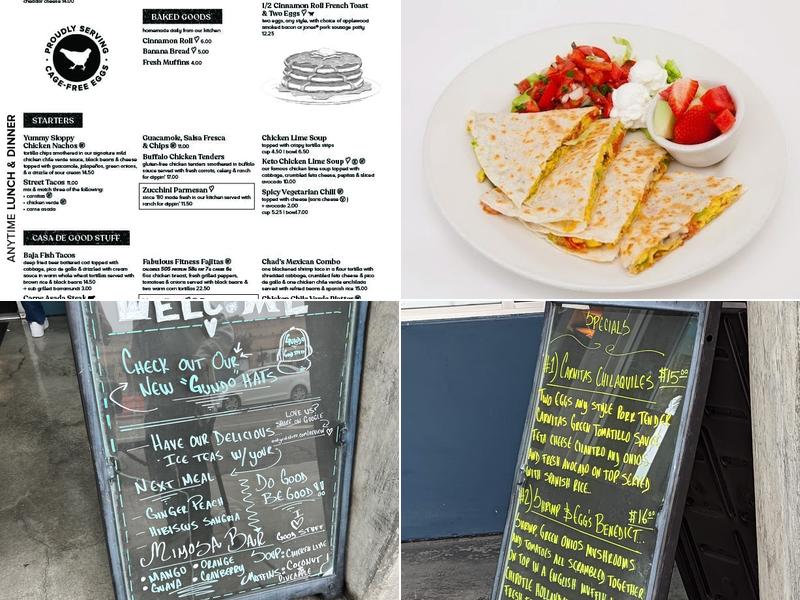 cheddar cheese 14.00
PROUDLY SERVING
CAGE-FREE EGGS
BAKED GOODS
homemade daily from our kitchen
Cinnamon Roll 6.00
Banana Bread 5.00
Fresh Muffins 4.00
1/2 Cinnamon Roll French Toast
& Two Eggs
two eggs, any style, with choice of applewood
smoked bacon or jones® pork sausage patty
12.25
ANYTIME LUNCH & DINNER
STARTERS
Yummy Sloppy
Chicken Nachos
tortilla chips smothered in our signature mild
chicken chile verde sauce, black beans & cheese
topped with guacamole, jalapeños, green onions,
& a dizzle of sour cream 14.50
Street Tacos 11.00
mix & match three of the following:
• carnitas
• chicken verde
• carne asada
Guacamole, Salsa Fresca
& Chips 11.00
Buffalo Chicken Tenders
gluten-free chicken tenders smothered in buffalo
sauce served with fresh carrots, celery & ranch
for dippin' 17.00
Zucchini Parmesan
since '80 made fresh in our kitchen served with
ranch for dippin' 11.50
Chicken Lime Soup
topped with crispy tortilla strips
cup 4.50 | bowl 6.50
Keto Chicken Lime Soup
our famous chicken lime soup topped with
cabbage, crumbled feta cheese, pepitas & sliced
avocado 10.00
Spicy Vegetarian Chili
topped with cheese (sans cheese
+ avocado 2.00
cup 5.25 | bowl 7.00
CASA DE GOOD STUFF
Baja Fish Tacos
deep fried beer battered cod topped with
cabbage, pico de gallo & drizzled with cream
sauce in warm whole wheat tortillas served with
brown rice & black beans 14.50
+ sub grilled barramundi 3.00
Carne Asada Steak
Fabulous Fitness Fajitas
6oz chicken breast, fresh grilled peppers,
tomatoes & onions served with black beans &
two warm corn tortillas 22.50
Chad's Mexican Combo
one blackened shrimp taco in a flour tortilla with
shredded cabbage, crumbled feta cheese & pico
de gallo & one chicken verde enchilada
served with refried beans & spanish rice 15.00
Chicken Chile Verde Platter
WELCOME
CHECK OUT OUR
NEW "GUNDO HATS
HAVE OUR DELICIOUS
ICE TEAS W/YOUR
NEXT MEAL
- GINGER PEACH
- HIBISCUS SANGRIA
LOVE US?
SHARE ON GOOGLE
DO GOOD
BE GOOD!!
I
GOOD STUFF
MIMOSA BAR
• MANGO
• GUAVA
• ORANGE
• CRANBERRY
SOUP: CHICKEN LIME
MUFFINS: COCONUT
PINEAPPLE
SPECIALS
#1) CARNITAS CHILAQUILES $15.00
TWO EGGS ANY STYLE PORK TENDER
CARNITAS GREEN TOMATILLO SAUCE
FETA CHEESE CILANTRO AND ONIOS
AND FRESH AVOCADO ON TOP SERVED
WITH SPANISH RICE.
#2) SHRIMP & EGG'S BENEDICT.. $16.00
SHRIMP GREEN ONIOS MUSHROOMS
AND TOMATOES ALL SCRAMBLED TOGETHER
ON TOP IN A ENGLISH MUFFIN
CHIPOTLE HOLLAND